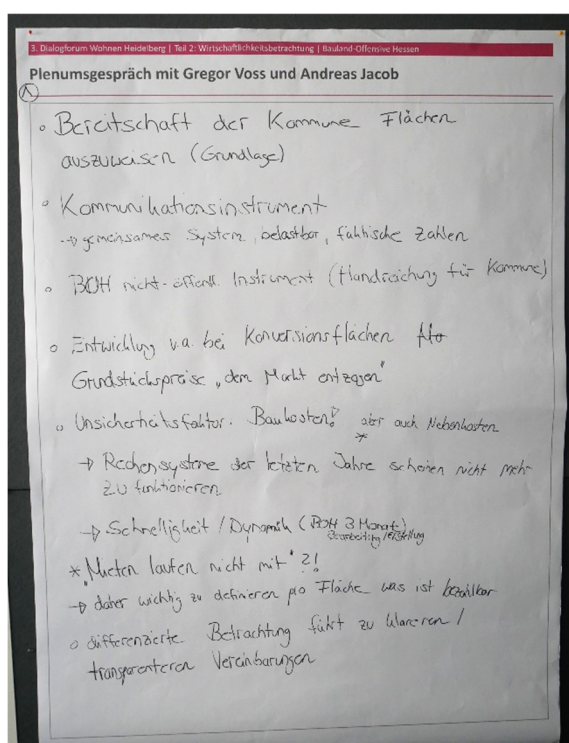 3. Dialogforum Wohnen Heidelberg | Teil 2: Wirtschaftlichkeitsbetrachtung | Bauland-Offensive Hessen
Plenumsgespräch mit Gregor Voss und Andreas Jacob
1
• Bereitschaft der Kommune Flächen
auszuweisen (Grundlage)
• Kommunikationsinstrument
→ gemeinsames System, belastbar, faktische Zahlen
• BOH nicht-öffentl. Instrument (Handreichung für Kommune)
• Entwicklung v.a. bei Konversionsflächen
Grundstückspreise "dem Markt entzogen"
• Unsicherheitsfaktor: Baukosten! aber auch Nebenkosten
*
→ Rechensysteme der letzten Jahre scheinen nicht mehr
zu funktionieren
→ Schnelligkeit / Dynamik (BOH 3 Monate)
Bearbeitung / Erstellung
* "Mieten laufen nicht mit" ?!
→ daher wichtig zu definieren pro Fläche was ist bezahlbar
• differenzierte Betrachtung führt zu klareren /
transparenteren Vereinbarungen